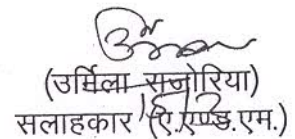 (उर्मिला सजोरिया)
सलाहकार (ए.एण्ड.एम.)